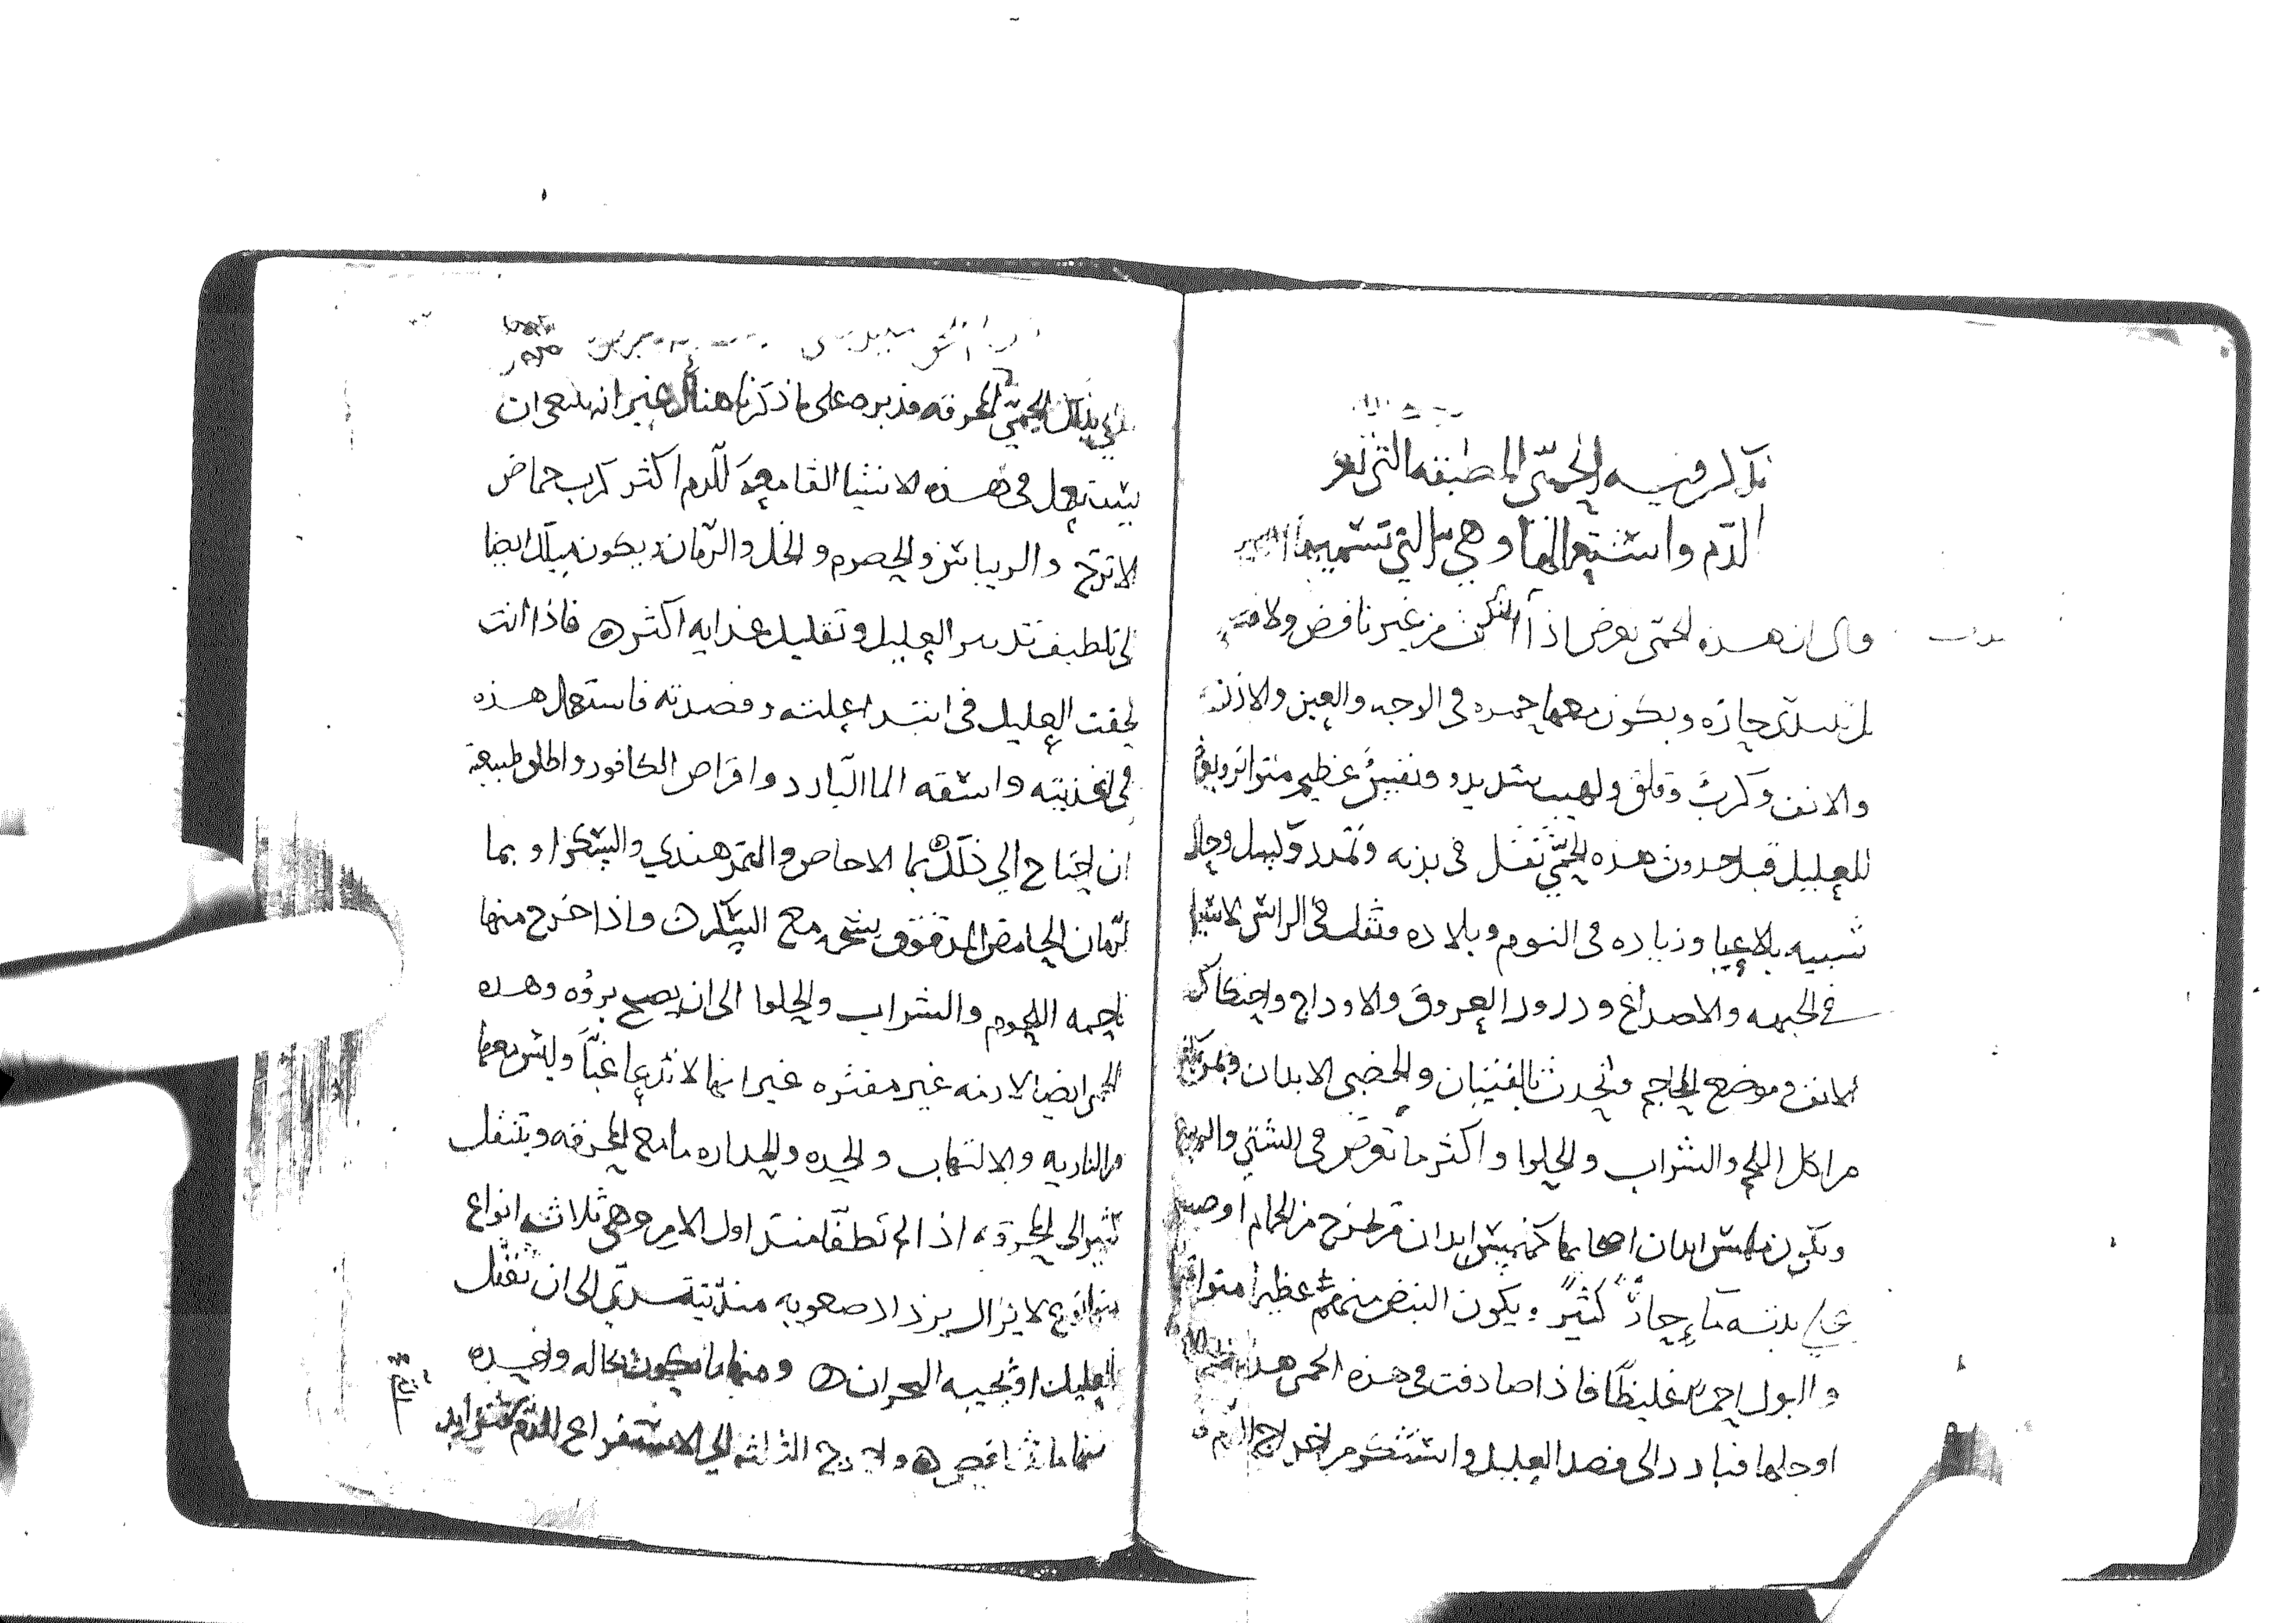 نذكر فيه الحمى المطبقه التي
الدم واشتعالها وهي التي تسميها
قال ان هذه الحمى تعرض اذا من غير نافض ولا
حاره ويكون معها حمره في الوجه والعين والاذن
والانف وكرب وقلق ولهيب شديد ونفس عظيم متواتر
للعليل قبل حدوث هذه الحمى ثقل في بدنه وتمدد وكسل وحال
شبيه بالاعيا وزياده في النوم وبلاده وثقل في الراس لا سيما
في الجبهه والاصداغ ودرور العروق والاوداج واحتكاك
الانف وموضع المحاجم وتحدث بالفتيان والخصبي الابدان
من اكل اللحم والشراب والحلوا واكثر ما تعرض في الشتي والربيع
ويكون ملمس ابدان اصحابها كملمس ابدان من خرج من الحمام او صب
على بدنه ما حار كثير ويكون النبض منهم عظيما متواترا
والبول احمر غليظا فاذا صادفت في هذه الحمى هذه
او جلها فبادر الى فصد العليل واستكثر من اخراج الدم
الحمى المحرقه فدبره على ما ذكرنا هناك غير انه ينبغي ان
يستعمل في هذه الاشيا القامعه للدم اكثر كرب حماض
الاترج والريباس والحصرم والخل والرمان ويكون ميلك ايضا
الى تلطيف تدبير العليل وتقليل غذايه اكثر فاذا انت
لحقت العليل في ابتدا علته وفصدته فاستعمل هذه
في اغذيته واسقه الما البارد واقراص الكافور واطلق طبيعته
ان احتاج الى ذلك بما الاجاص والتمر هندي والسكر او بما
الرمان الحامض المدقوق بشحمه مع السكر فاذا خرج منها
فاحمه اللحوم والشراب والحلوا الى ان يصح بروه وهذه
الحمى ايضا لازمه غير مفتره غير انها لا تنوب غبا وليس معها
من الناريه والالتهاب والحده والحراره ما مع المحرقه وتنتقل
كثير الى المحرقه اذا لم تطفا منذ اول الامر وهي ثلاثه انواع
منها نوع لا يزال يزداد صعوبه منذ تبتدي الى ان تقتل
العليل او يجيه البحران ومنها ما يكون بحاله واحده
ومنها ما تتناقص الى الاستفراغ الدم